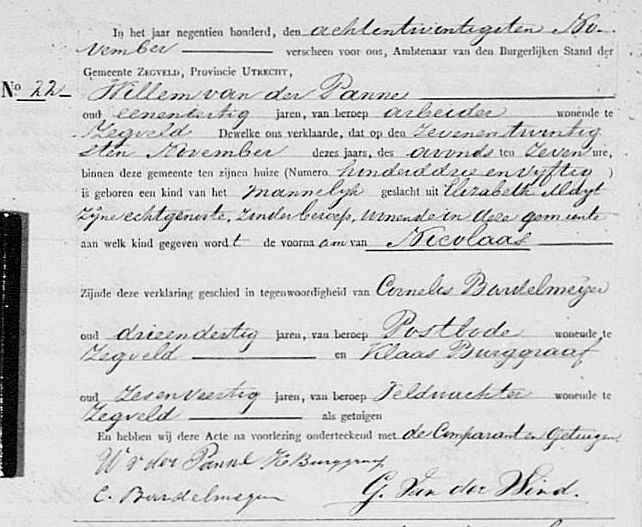 In het jaar negentien honderd, den achtentwintigsten No-
vember verscheen voor ons, Ambtenaar van den Burgerlijken Stand der
Gemeente ZEGVELD, Provincie UTRECHT,
No 22 Willem van der Panne
oud eenendertig jaren, van beroep arbeider wonende te
Zegveld Dewelke ons verklaarde, dat op den zevenentwintig
sten November dezes jaars, des avonds ten zeven ure,
binnen deze gemeente ten zijnen huize (Numero honderddrieenvijftig )
is geboren een kind van het mannelijk geslacht uit Elizabeth
zijne echtgenoote, zonder beroep, wonende in deze gemeente
aan welk kind gegeven wordt de voornaam van Nicolaas
Zijnde deze verklaring geschied in tegenwoordigheid van Cornelis Bardelmeijer
oud drieendertig jaren, van beroep Postbode wonende te
Zegveld en Klaas Burggraaf
oud zesenveertig jaren, van beroep Veldwachter wonende te
Zegveld als getuigen
En hebben wij deze Acte na voorlezing onderteekend met de Comparant en Getuigen
W v der Panne K Burggraaf
C. Bardelmeijer G. Van der Wind.